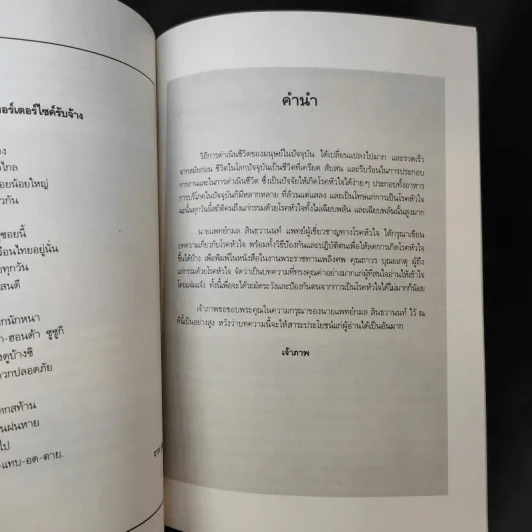 อร์เตอร์ไซค์รับจ้าง
อง
ไกล
อยน้อยใหญ่
วกัน
ซอยนี้
รือนไทยอยู่นั่น
ทุกวัน
สนดี
กนักหนา
า-ฮอนด้า ซูซูกิ
งดูบ้างซิ
วกปลอดภัย
ทกสท้าน
นฝนหาย
ไป
-แทบ-อด-ตาย.
คำนำ
วิถีการดำเนินชีวิตของมนุษย์ในปัจจุบัน ได้เปลี่ยนแปลงไปมาก และรวดเร็ว
จากสมัยก่อน ชีวิตในโลกปัจจุบันเป็นชีวิตที่เครียด สับสน และรีบร้อนในการประกอบ
การงานและในการดำเนินชีวิต ซึ่งเป็นปัจจัยให้เกิดโรคหัวใจได้ง่ายๆ ประกอบทั้งอาหาร
การบริโภคในปัจจุบันก็มีหลากหลาย ที่ล้วนแต่แสลง และเป็นโทษแก่การเป็นโรคหัวใจ
ฉะนั้นทุกวันนี้อุบัติคนถึงแก่กรรมด้วยโรคหัวใจทั้งไม่เฉียบพลัน และเฉียบพลันนั้นสูงมาก
นายแพทย์กมล สินธวานนท์ แพทย์ผู้เชี่ยวชาญทางโรคหัวใจ ได้กรุณาเขียน
บทความเกี่ยวกับโรคหัวใจ พร้อมทั้งวิธีป้องกันและปฏิบัติตนเพื่อให้ลดการเกิดโรคหัวใจ
ขึ้นได้บ้าง เพื่อพิมพ์ในหนังสือในงานพระราชทานเพลิงศพ คุณถาวร บุณยเกตุ ผู้ถึง
แก่กรรมด้วยโรคหัวใจ จัดว่าเป็นบทความที่ทรงคุณค่าอย่างมากแก่ผู้ที่สนใจอ่านให้เข้าใจ
โดยแจ่มแจ้ง ทั้งนี้เพื่อจะได้ระมัดระวังและป้องกันตนจากการเป็นโรคหัวใจได้ไม่มากก็น้อย
เจ้าภาพขอขอบพระคุณในความกรุณาของนายแพทย์กมล สินธวานนท์ ไว้ ณ
ที่นี้เป็นอย่างสูง หวังว่าบทความนี้จะให้สาระประโยชน์แก่ผู้อ่านได้เป็นอันมาก
เจ้าภาพ